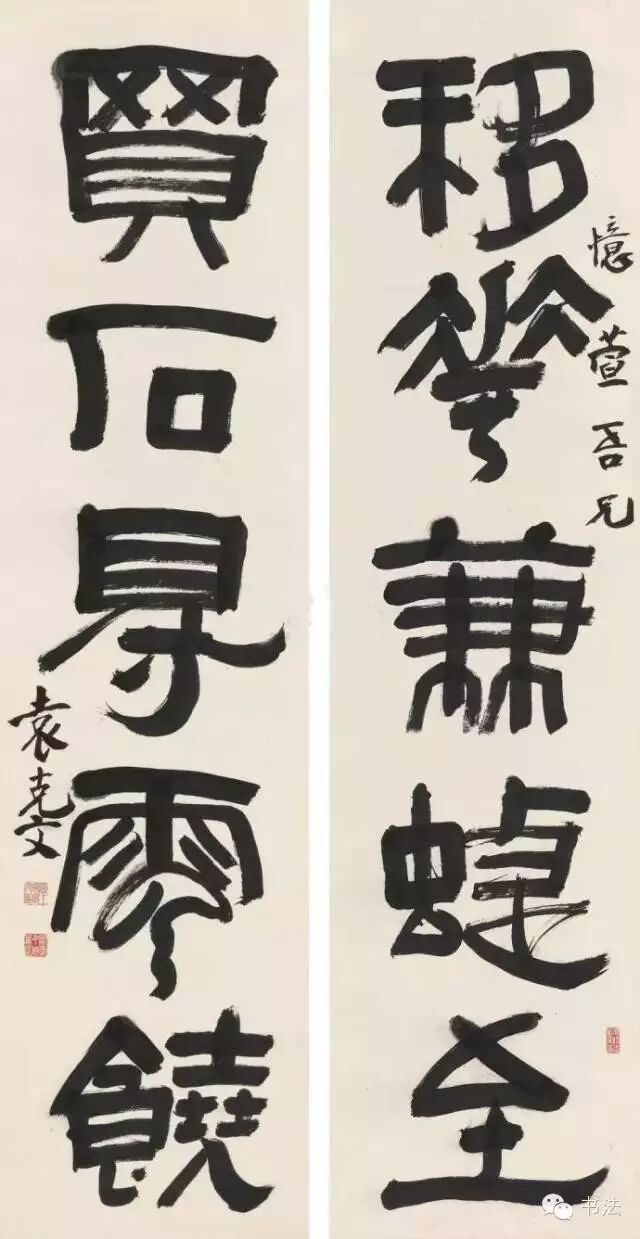 憶萱吾兄
移華兼蝶至
買石得雲饒
袁克文
书法